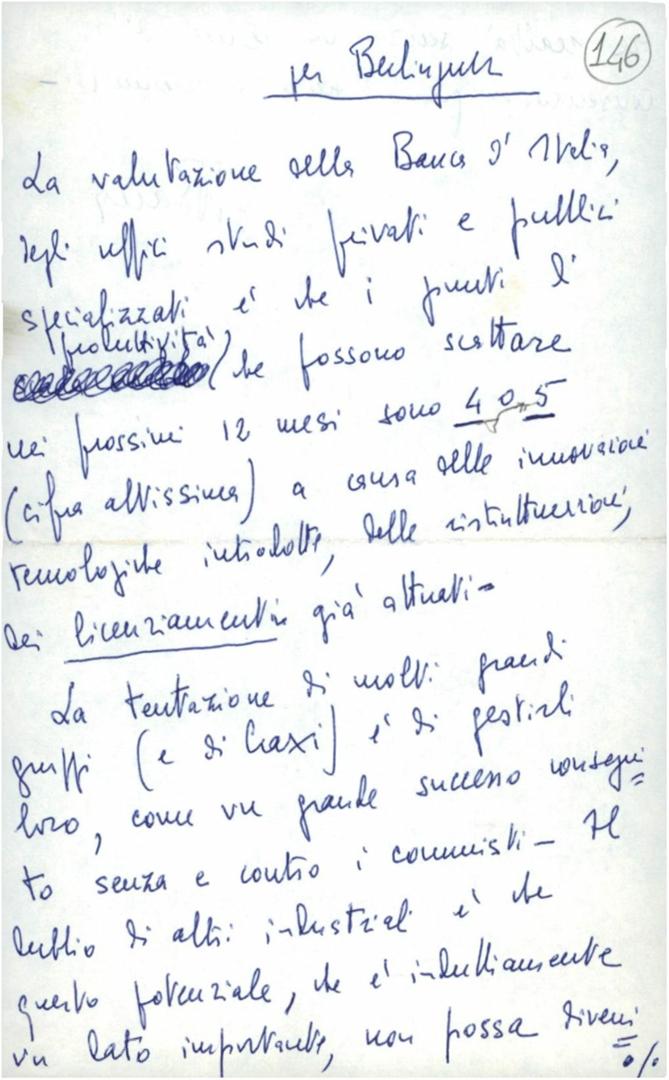 146
per Berlinguer
La valutazione della Banca d'Italia,
degli uffici studi privati e pubblici
specializzati e' che i punti di
produttività
che possono scattare
nei prossimi 12 mesi sono 4 o 5
(cifra altissima) a causa delle innovazioni
tecnologiche introdotte, delle ristrutturazioni,
dei licenziamenti già attuati -
La tentazione di molti grandi
gruppi (e di Craxi) e' di gestirli
loro, come un grande successo consegui=
to senza e contro i comunisti - Il
dubbio di altri industriali e' che
questo potenziale, che e' indubbiamente
un dato importante, non possa diveni=
./.